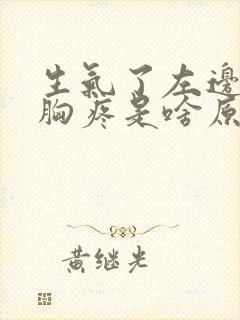 生氣了左邊
胸疼是啥原
黄继光